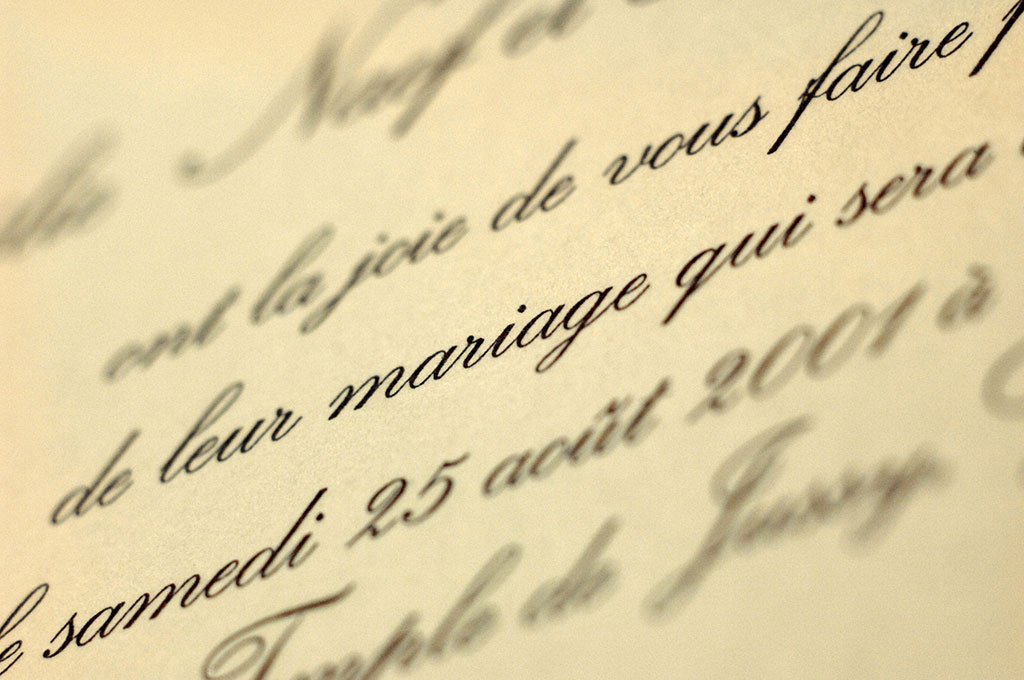 et
ont la joie de vous faire
de leur mariage qui sera
le samedi 25 août 2001 à
Temple de Jussy